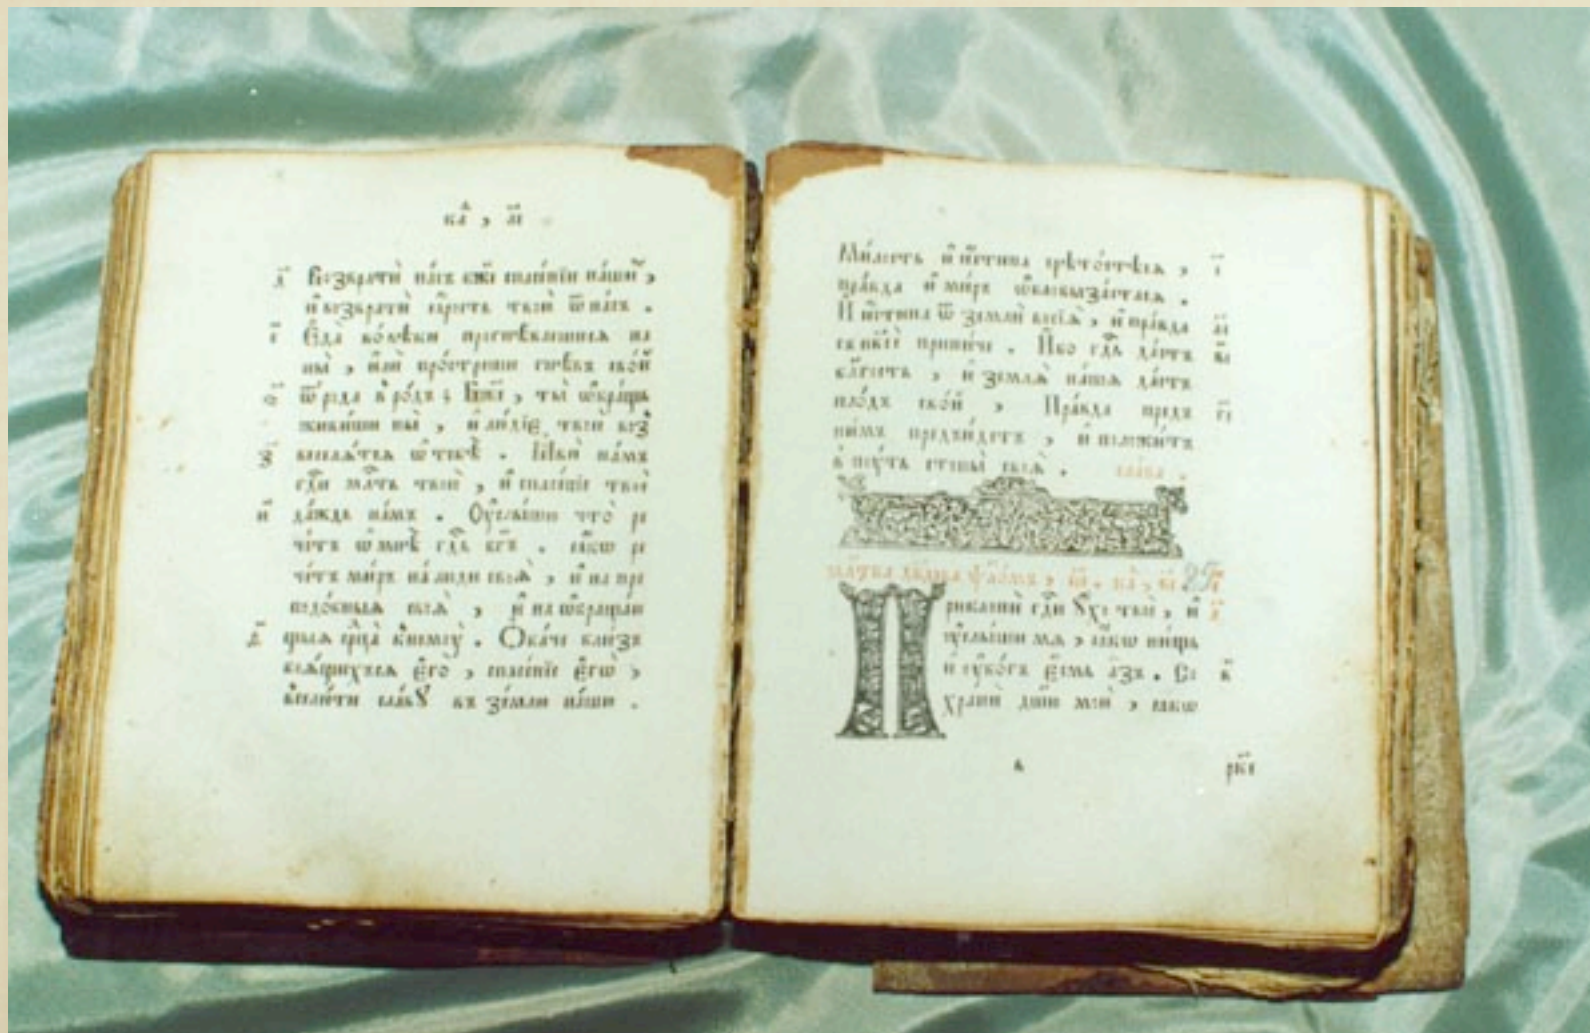 д҃ Возвратѝ на́съ бж҃е спасе́нїи на́ши̾ ,
и҆ возвратѝ ꙗ҆́рость твою̀ ѿ на́съ .
є҃ Є҆да̀ во́вѣки прогнѣ́ваешися на
ны̀ , и҆лѝ простре́ши гнѣ́въ сво́й
ѕ҃ ѿ ро́да в ро́дъ ; Бж҃е , ты̀ ѡ҆бра́щь
живи́ши ны̀ , и҆ лю́дїє твоѝ воз
з҃ веселѧ́тсѧ ѡ҆ тебѣ̀ . Ꙗ҆вѝ на́мъ
гдⷭ҇и млⷭ҇ть твою̀ , и҆ спасе́нїе твоѐ
и҃ да́ждь на́мъ . Оу҆слы́шꙋ что̀ ре
че́тъ ѡ҆ мнѣ̀ гдⷭ҇ь бг҃ъ . ꙗ҆́кѡ ре
че́тъ ми́ръ на лю́ди своѧ̀ , и҆ на пре
подо́бныѧ своѧ̀ , и҆ на ѡ҆браща́ю
ѳ҃ щыѧ срⷣца̀ к нему̀ . Ѻ҆ба́че бли́зъ
боѧ́щихсѧ є҆гѡ̀ , спасе́нїе є҆гѡ̀ ,
всели́ти сла́вꙋ въ зе́мли на́шей .
Ми́лость и҆ и҆́стина срѣто́стѣсѧ , і҃
пра́вда и҆ ми́ръ ѡ҆блобыза́стасѧ .
И҆́стина ѿ землѝ возсїѧ̀ , и҆ пра́вда а҃і
съ нб҃сѐ прини́че . И҆́бо гдⷭ҇ь да́стъ в҃і
бл҃гость , и҆ землѧ̀ на́ша да́стъ
пло́дъ сво́й , Пра́вда предъ г҃і
ни́мъ предъи́детъ , и҆ положи́тъ
в пꙋ́ть стопы̀ своѧ̀ . сла́ва .
мл҃тва дв҃дꙋ ѱало́мъ , 25
Приклонѝ гдⷭ҇и ᲂу҆́хо твоѐ , и҆ а҃
ᲂу҆слы́ши мѧ , ꙗ҆́кѡ ни́щь
и҆ ᲂу҆бо́гъ є҆́смь а҆́зъ . Со в҃
хранѝ дш҃ꙋ мою̀ , ꙗ҆́кѡ